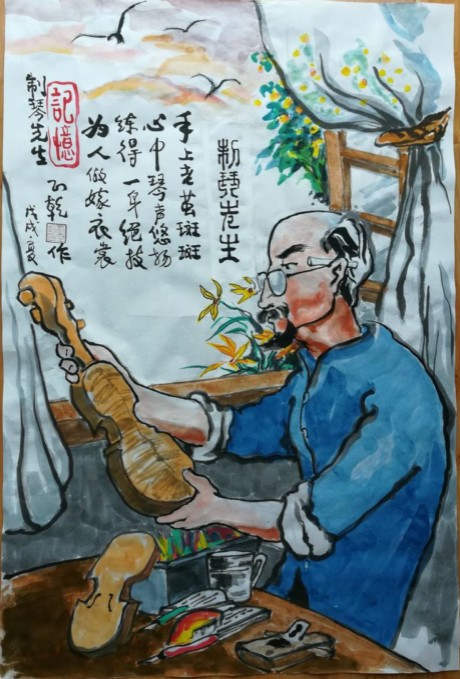 制琴先生
手上老茧斑斑
心中琴声悠扬
练得一手绝技
为人做嫁衣裳
记憶
制琴先生
戊戌·夏
乾
作